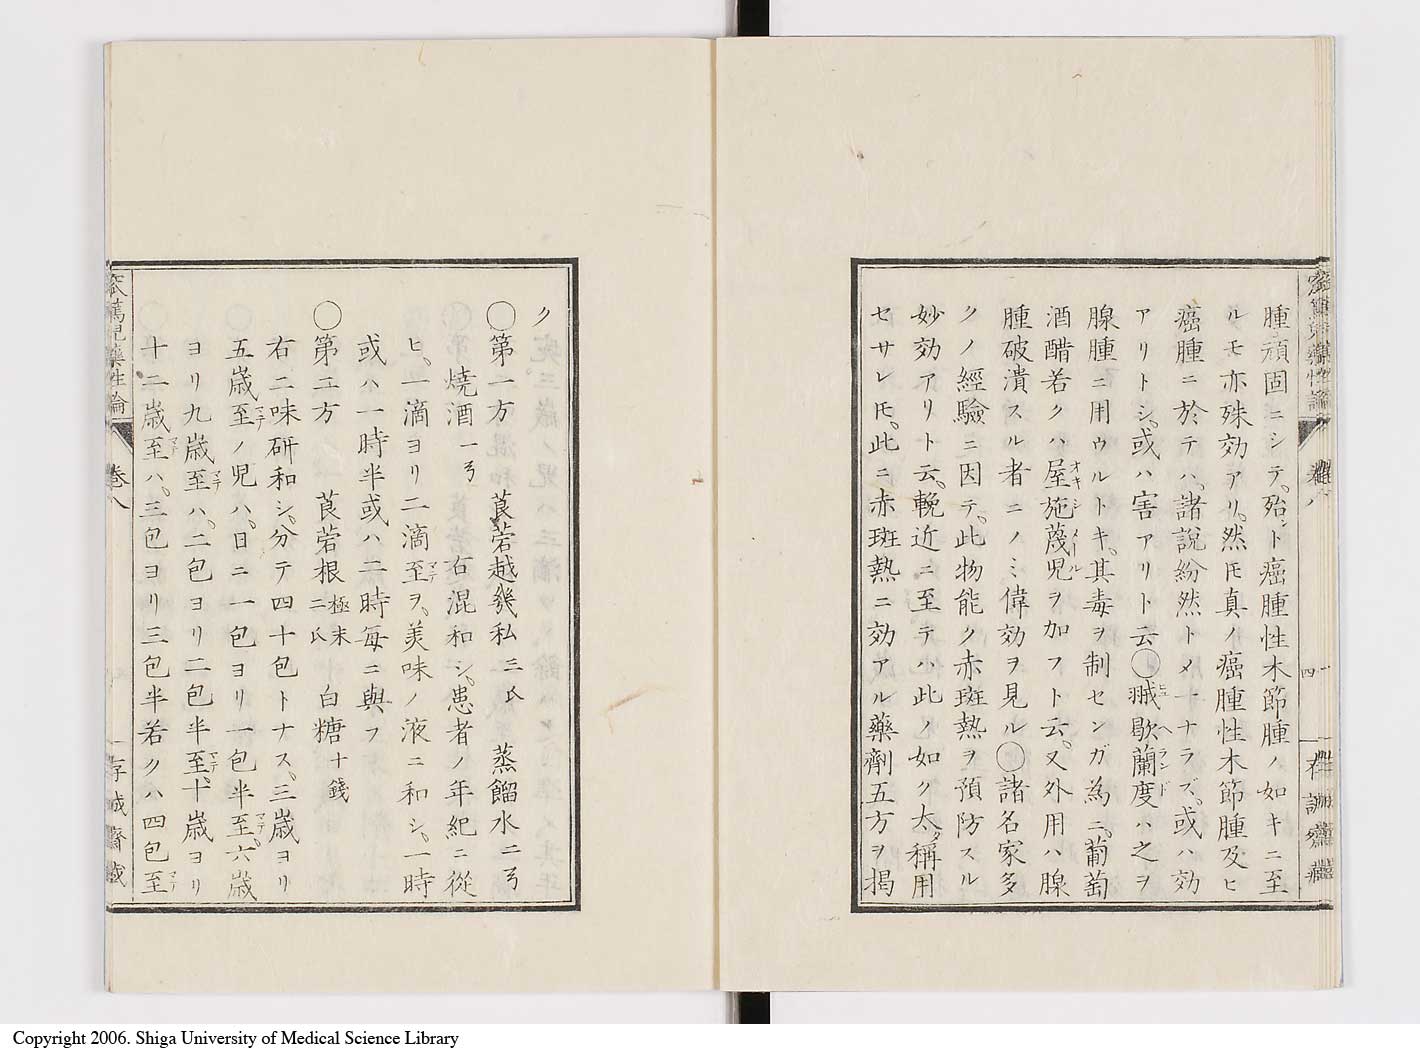 腫頑固ニシテ、殆ント癌腫性木節腫ノ如キニ至
ルモ亦殊効アリ、然𪜈真ノ癌腫性木節腫及ヒ
癌腫ニ於テハ、諸説紛然トメ一ナラズ、或ハ効
アリトシ、或ハ害アリト云〇䎀歇蘭度ハ之ヲ
ヒュヘランド
腺腫ニ用ウルトキ、其毒ヲ制センガ為ニ、葡萄
酒醋若クハ屋施蔑児ヲ加フト云、又外用ハ腺
オキシメール
腫破潰スル者ニノミ偉効ヲ見ル〇諸名家多
クノ經驗ニ因テ、此物能ク赤斑熱ヲ預防スル
妙効アリト云、輓近ニ至テハ此ノ如ク太タ稱用
セサレ𪜈、此ニ赤斑熱ニ効アル藥劑五方ヲ掲
四
ク
〇第一方 莨菪越幾私 二氏 蒸餾水 二弓
燒酒 一弓 右混和シ、患者ノ年紀ニ從
ヒ、一滴ヨリ二滴至ヲ、美味ノ液ニ和シ、一時
マデ
或ハ一時半或ハ二時每ニ與フ
〇第二方 莨菪根 極末 二氏 白糖 十錢
右二味研和シ、分テ四十包トナス、三歳ヨリ
五歳至ノ児ハ、日ニ一包ヨリ一包半至、六歳
マデ マデ
ヨリ九歳至ハ、二包ヨリ二包半至、十歳ヨリ
マデ マデ
十二歳至ハ、三包ヨリ三包半若クハ四包至
マデ マデ
窊篤児藥性論
卷八
存誠齋蔵
Copyright 2006. Shiga University of Medical Science Library